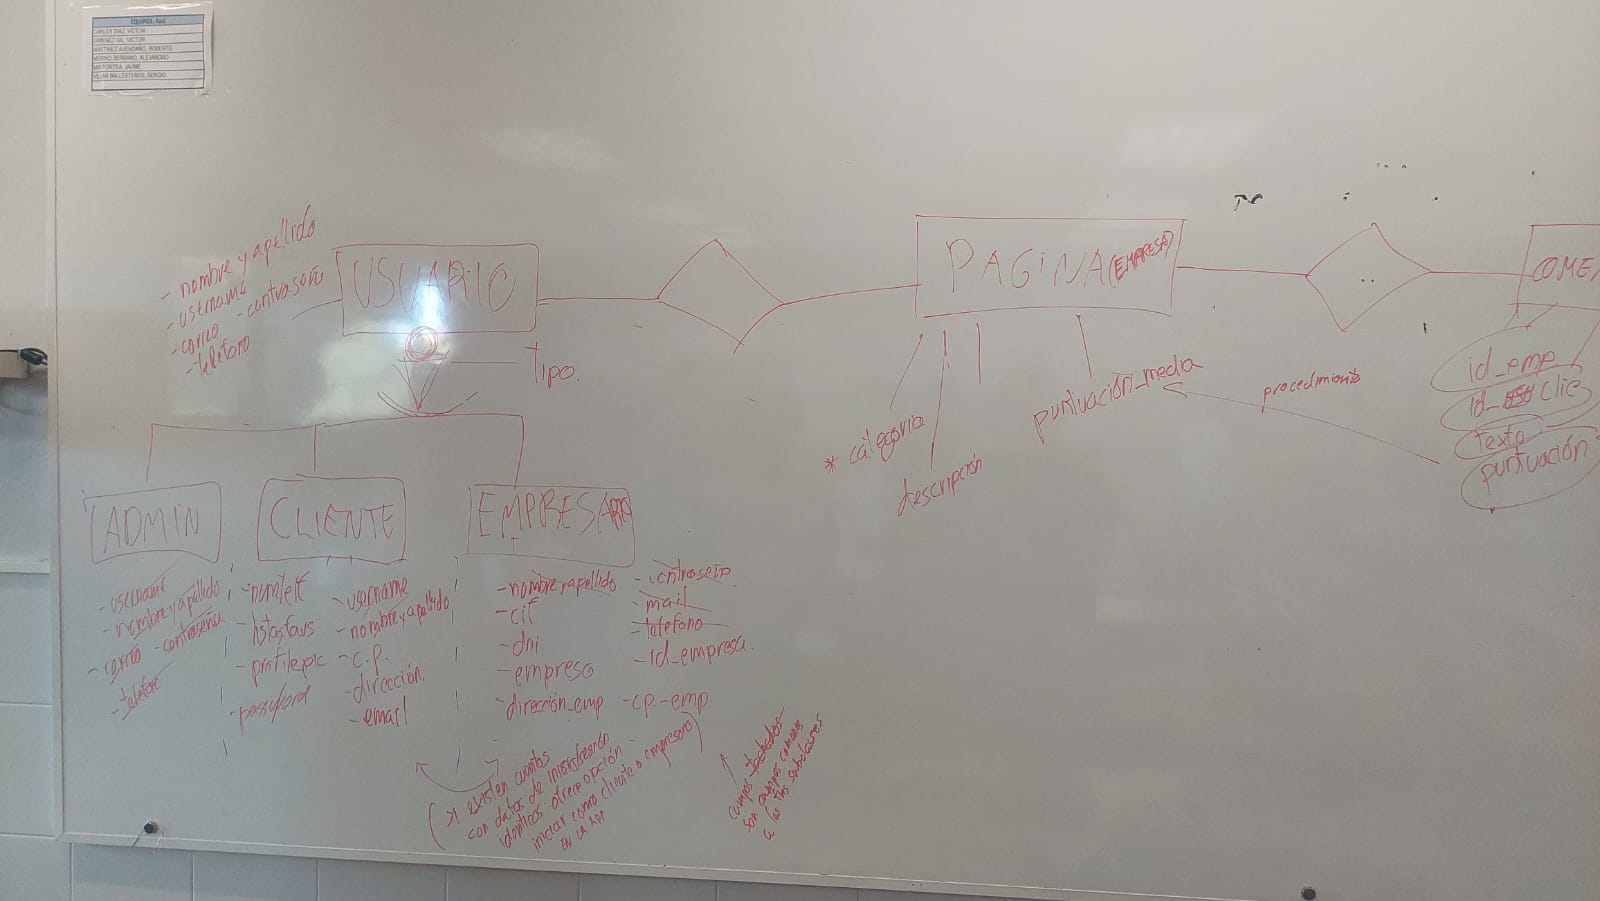 EQUIPO1. Azul
CARLES DIAZ, VICTOR
GIMENEZ GIL, VICTOR
MARTINEZ AVENDAÑO, ROBERTO
MERINO SERRANO, ALEJANDRO
MIR FORTEA, JAUME
VILLAR BALLESTEROS, SERGIO
- nombre y apellido
- username
- correo - contraseña
- telefono
USUARIO
TIPO.
PAGINA (EMPRESA)
* categoria
descripción
puntuación_media
procedimiento
COME
id_emp
id_ Clie
texto
puntuación
ADMIN
- username
- nombre y apellido
- correo - contraseña
- telefono
CLIENTE
- numtelf
- listasfavs
- profilepic
- password
- username
- nombre y apellido
- c.p.
- dirección.
- email
EMPRESARIO
- nombre y apellido
- cif
- dni
- empresa
- dirección_emp
- contraseña
- mail
- telefono
- id_empresa.
- cp.-emp
(si existen cuentas
con datos de inicio/sesión
identicos. ofrece opción
iniciar como cliente o empresario)
EN LA APP
campos tachados
son campos comunes
a las tres subclases